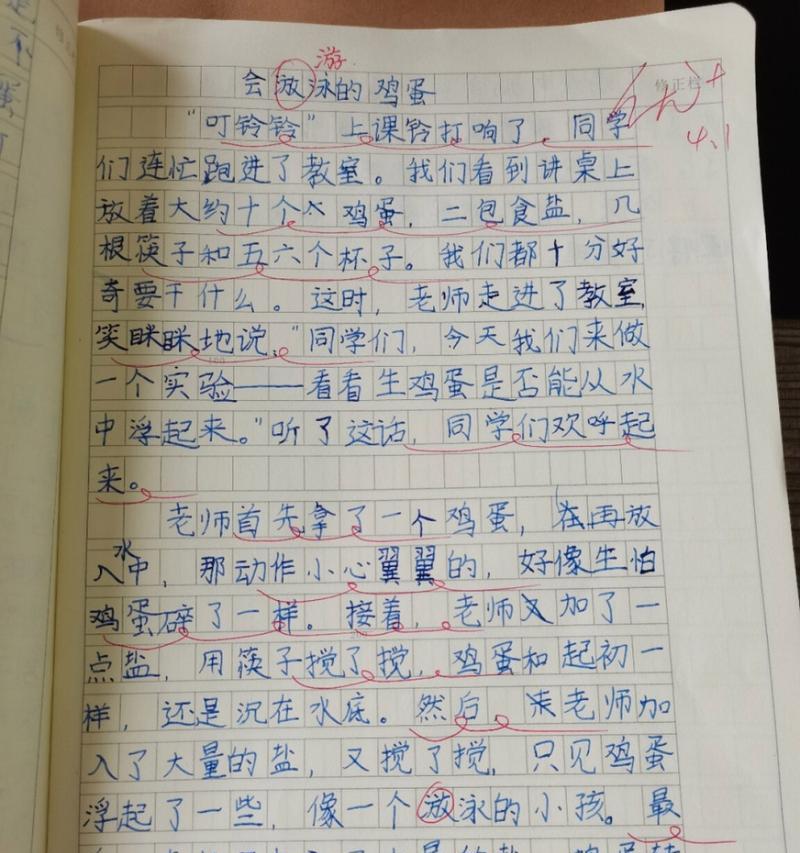 游
会放泳的鸡蛋
修正栏
4.1
"叮铃铃"上课铃打响了，同学
们连忙跑进了教室。我们看到讲桌上
放着大约十个个鸡蛋，二包食盐，几
根筷子和五六个杯子。我们都十分好
奇要干什么。这时，老师走进了教室，
笑眯眯地说："同学们，今天我们来做
一个实验——看看生鸡蛋是否能从水
中浮起来。"听了这话，同学们欢呼起
来。
老师首先拿了一个鸡蛋，再放
入水中，那动作小心翼翼的，好像生怕
鸡蛋碎了一样。接着，老师又加了一
点盐，用筷子搅了搅，鸡蛋和起初一
样，还是沉在水底。然后，老师加
入了大量的盐，又搅了搅，只见鸡蛋
浮起了一些，像一个放泳的小孩。最